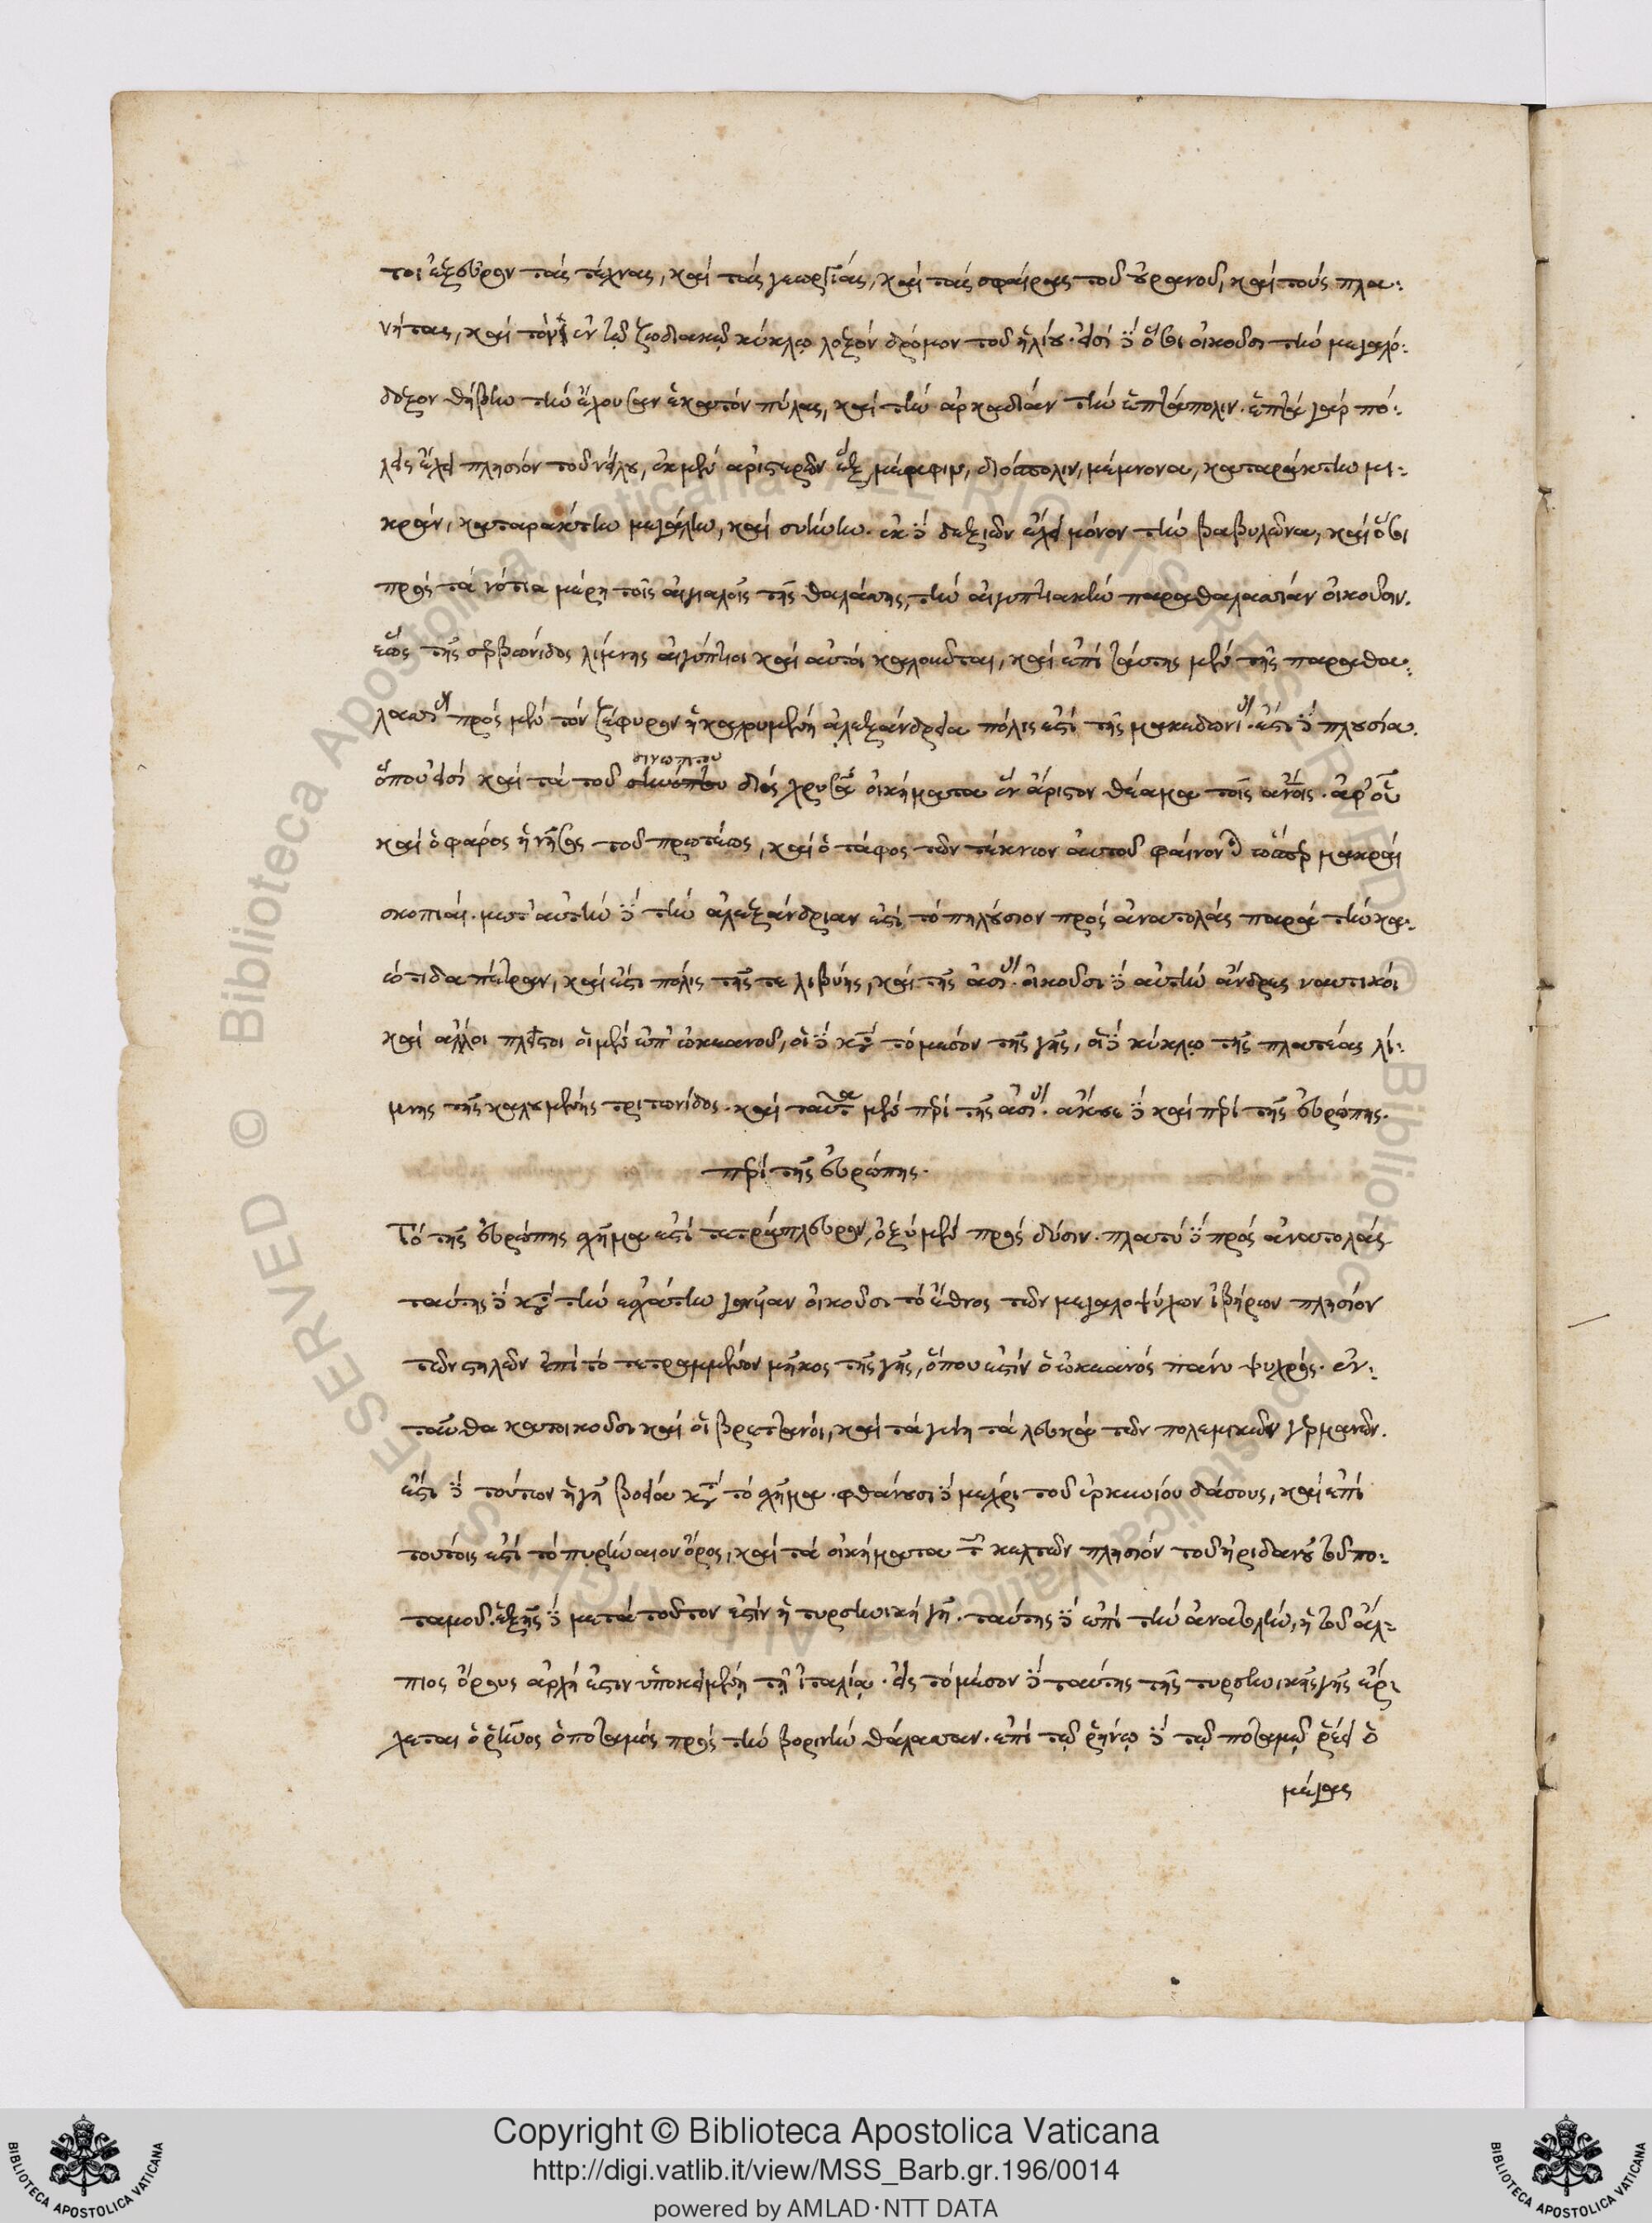 τοι ἐξεύρον τὰς τέχνας, καὶ τὰς γεωργίας, καὶ τὰς σφαίρας τοῦ οὐρανοῦ, καὶ τοὺς πλα-
νήτας, καὶ τὸν ἐν τῷ ζωδιακῷ κύκλῳ λοξὸν δρόμον τοῦ ἡλίου. εἰσὶ δὲ ὅσοι οἰκοῦσι τὴν μεγαλό-
δοξον θήβην τὴν ἔχουσαν ἑκατὸν πύλας, καὶ τὴν ἀρκαδίαν τὴν ἑπτάπολιν. ἑπτὰ γὰρ πό-
λεις ἔχει πλησίον τοῦ νείλου, ἐκ μὲν ἀριστερῶν ἓξ, μέμφιμ, διόσπολιν, μέμνονα, καταράκτην μι-
κρὰν, καταρακύτην μεγάλην, καὶ συήνην. ἐκ δὲ δεξιῶν ἔχει μόνον τὴν βαβυλῶνα, καὶ ὅσοι
πρὸς τὰ νότια μέρη τοῖς αἰγιαλοῖς τῆς θαλάσσης, τὴν αἰγυπτιακὴν παραθαλασσίαν οἰκοῦσιν.
ἕως τῆς σερβωνίδος λίμνης αἰγύπτιοι καὶ αὐτοὶ καλοῦνται, καὶ ἐπὶ ταύτης μὲν τῆς παραθα-
λασσίας πρὸς μὲν τὸν ζέφυρον ἡ καλουμένη ἀλεξάνδρεια πόλις ἐστὶ τῆς μακεδονίας. ἔστι δὲ πλουσία.
ὅπου εἰσὶ καὶ τὰ τοῦ σινωπίτου διὸς χρυσᾶ οἰκήματα ἓν ἄριστον θέαμα τοῖς ἀνοις. ἀφ' οὗ
καὶ ὁ φάρος ἡ νῆσος τοῦ πρωτέως, καὶ ὁ τάφος τῶν τέκνων αὐτοῦ φαίνονται ὥσπερ μακραὶ
σκοπιαί. μετ' αὐτὴν δὲ τὴν ἀλεξάνδριαν ἐστὶ τὸ πηλούσιον πρὸς ἀνατολὰς παρὰ τὴν κα-
σιότιδα πέτραν, καὶ ἔστι πόλις τῆς τε λιβύης, καὶ τῆς ἀσίας. οἰκοῦσι δὲ αὐτὴν ἄνδρες ναυτικοὶ
καὶ ἄλλοι πλεῖστοι οἱ μὲν ἐπ' ὠκεανοῦ, οἱ δὲ κατὰ τὸ μεσὸν τῆς γῆς, οἱ δὲ κύκλῳ τῆς πλατέας λί-
μνης τῆς καλουμένης τριτωνίδος. καὶ ταῦτα μὲν περὶ τῆς ἀσίας. ἄκουε δὲ καὶ περὶ τῆς εὐρώπης.
περὶ τῆς εὐρώπης.
Τὸ τῆς εὐρώπης σχῆμα ἐστὶ τετράπλευρον, ὀξὺ μὲν πρὸς δύσιν. πλατὺ δὲ πρὸς ἀνατολὰς
ταύτης δὲ κατὰ τὴν ἐσχάτην γωνίαν οἰκοῦσι τὸ ἔθνος τῶν μεγαλοψύχων ἰβήρων πλησίον
τῶν στηλῶν ἐπὶ τὸ τετραμμένον μῆκος τῆς γῆς, ὅπου ἐστὶν ὁ ὠκεανὸς πάνυ ψυχρὸς. ἐν-
ταῦθα κατοικοῦσι καὶ οἱ βρεττανοὶ, καὶ τὰ γένη τὰ λευκὰ τῶν πολεμικῶν γερμανῶν.
ἔστι δὲ τούτων ἡ γῆ βοεία κατὰ τὸ σχῆμα. φθάνουσι δὲ μέχρι τοῦ ἑρκυνίου δάσους, καὶ ἐπὶ
τούτοις ἐστὶ τὸ πυρήναιον ὄρος, καὶ τὰ οἰκήματα τ κελτῶν πλησίον τοῦ ἠριδανοῦ τοῦ πο-
ταμοῦ. ἑξῆς δὲ μετὰ τοῦτον ἐστὶν ἡ τυρσηνικὴ γῆ. ταύτης δὲ ἐπὶ τὴν ἀνατολὴν, ἡ τοῦ ἄλ-
πιος ὄρους ἀρχὴ ἐστιν ὑποκειμένη τῇ ἰταλίᾳ. εἰς τὸ μέσον δὲ ταύτης τῆς τυρσηνικῆς γῆς ἔρ-
χεται ὁ ῥῆνος ὁ ποταμὸς πρὸς τὴν βορινὴν θάλασσαν. ἐπὶ τῷ ῥήνῳ δὲ τῷ ποταμῷ ῥέει ὁ
μέγας
Copyright © Biblioteca Apostolica Vaticana
http://digi.vatlib.it/view/MSS_Barb.gr.196/0014
powered by AMLAD·NTT DATA